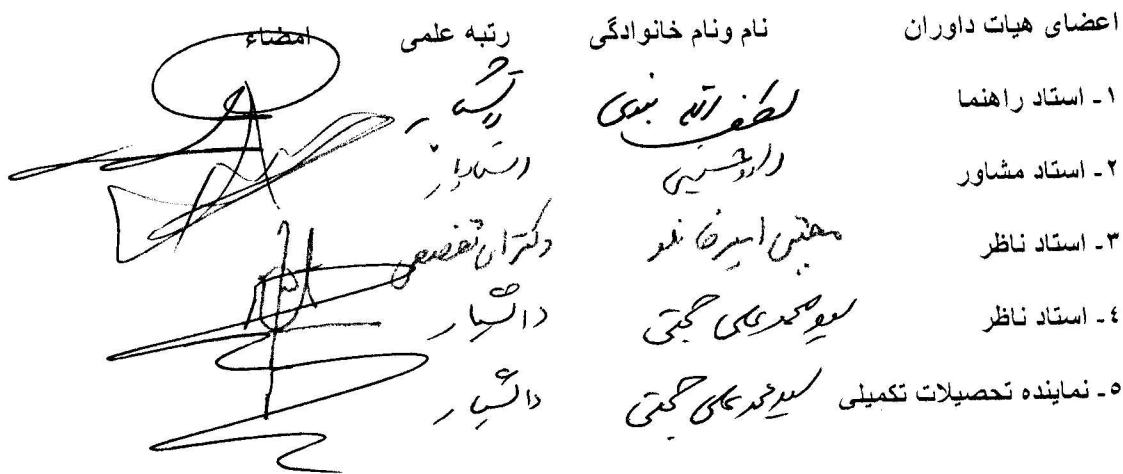 اعضای هیات داوران نام ونام خانوادگی رتبه علمی امضاء
۱ـ استاد راهنما لطف الله نبوی دانشیار
۲ـ استاد مشاور استادیار
۳ـ استاد ناظر مجتبی امیرخانلو دکترای تخصصی
٤ـ استاد ناظر سید محمد علی حجتی دانشیار
٥ـ نماینده تحصیلات تکمیلی سید محمد علی حجتی دانشیار